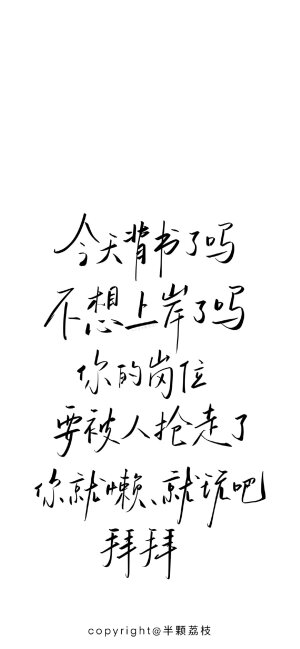 今天背书了吗
不想上岸了吗
你的岗位
要被人抢走了
你就懒、就玩吧
拜拜
copyright@半颗荔枝